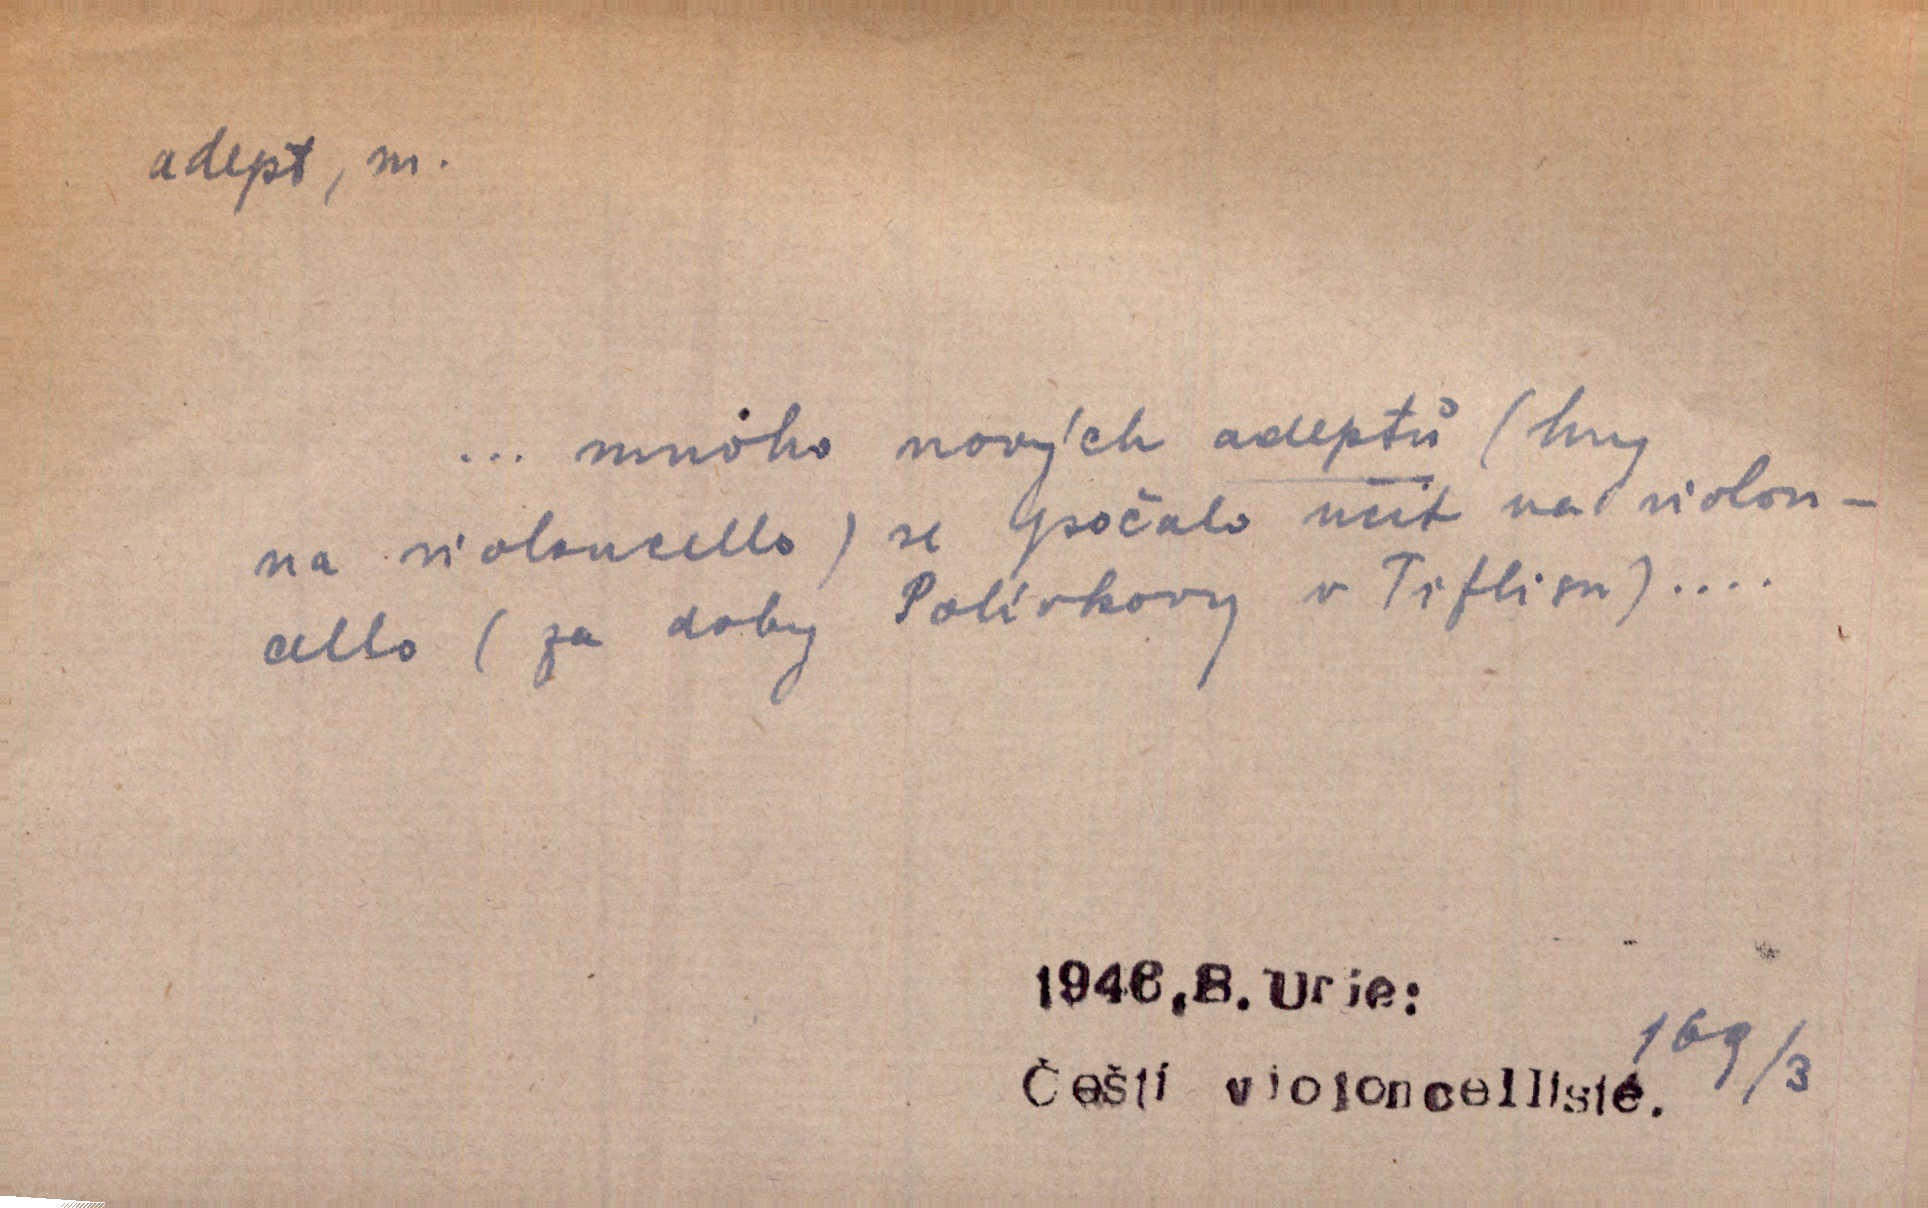 adept, m.
... mnoho nových adeptů (hry
na violoncello) se počalo učit na violon-
cello (za doby Polívkovy v Tiflisu)....
1946, B. Urie:
169/3
Čeští violoncellisté.